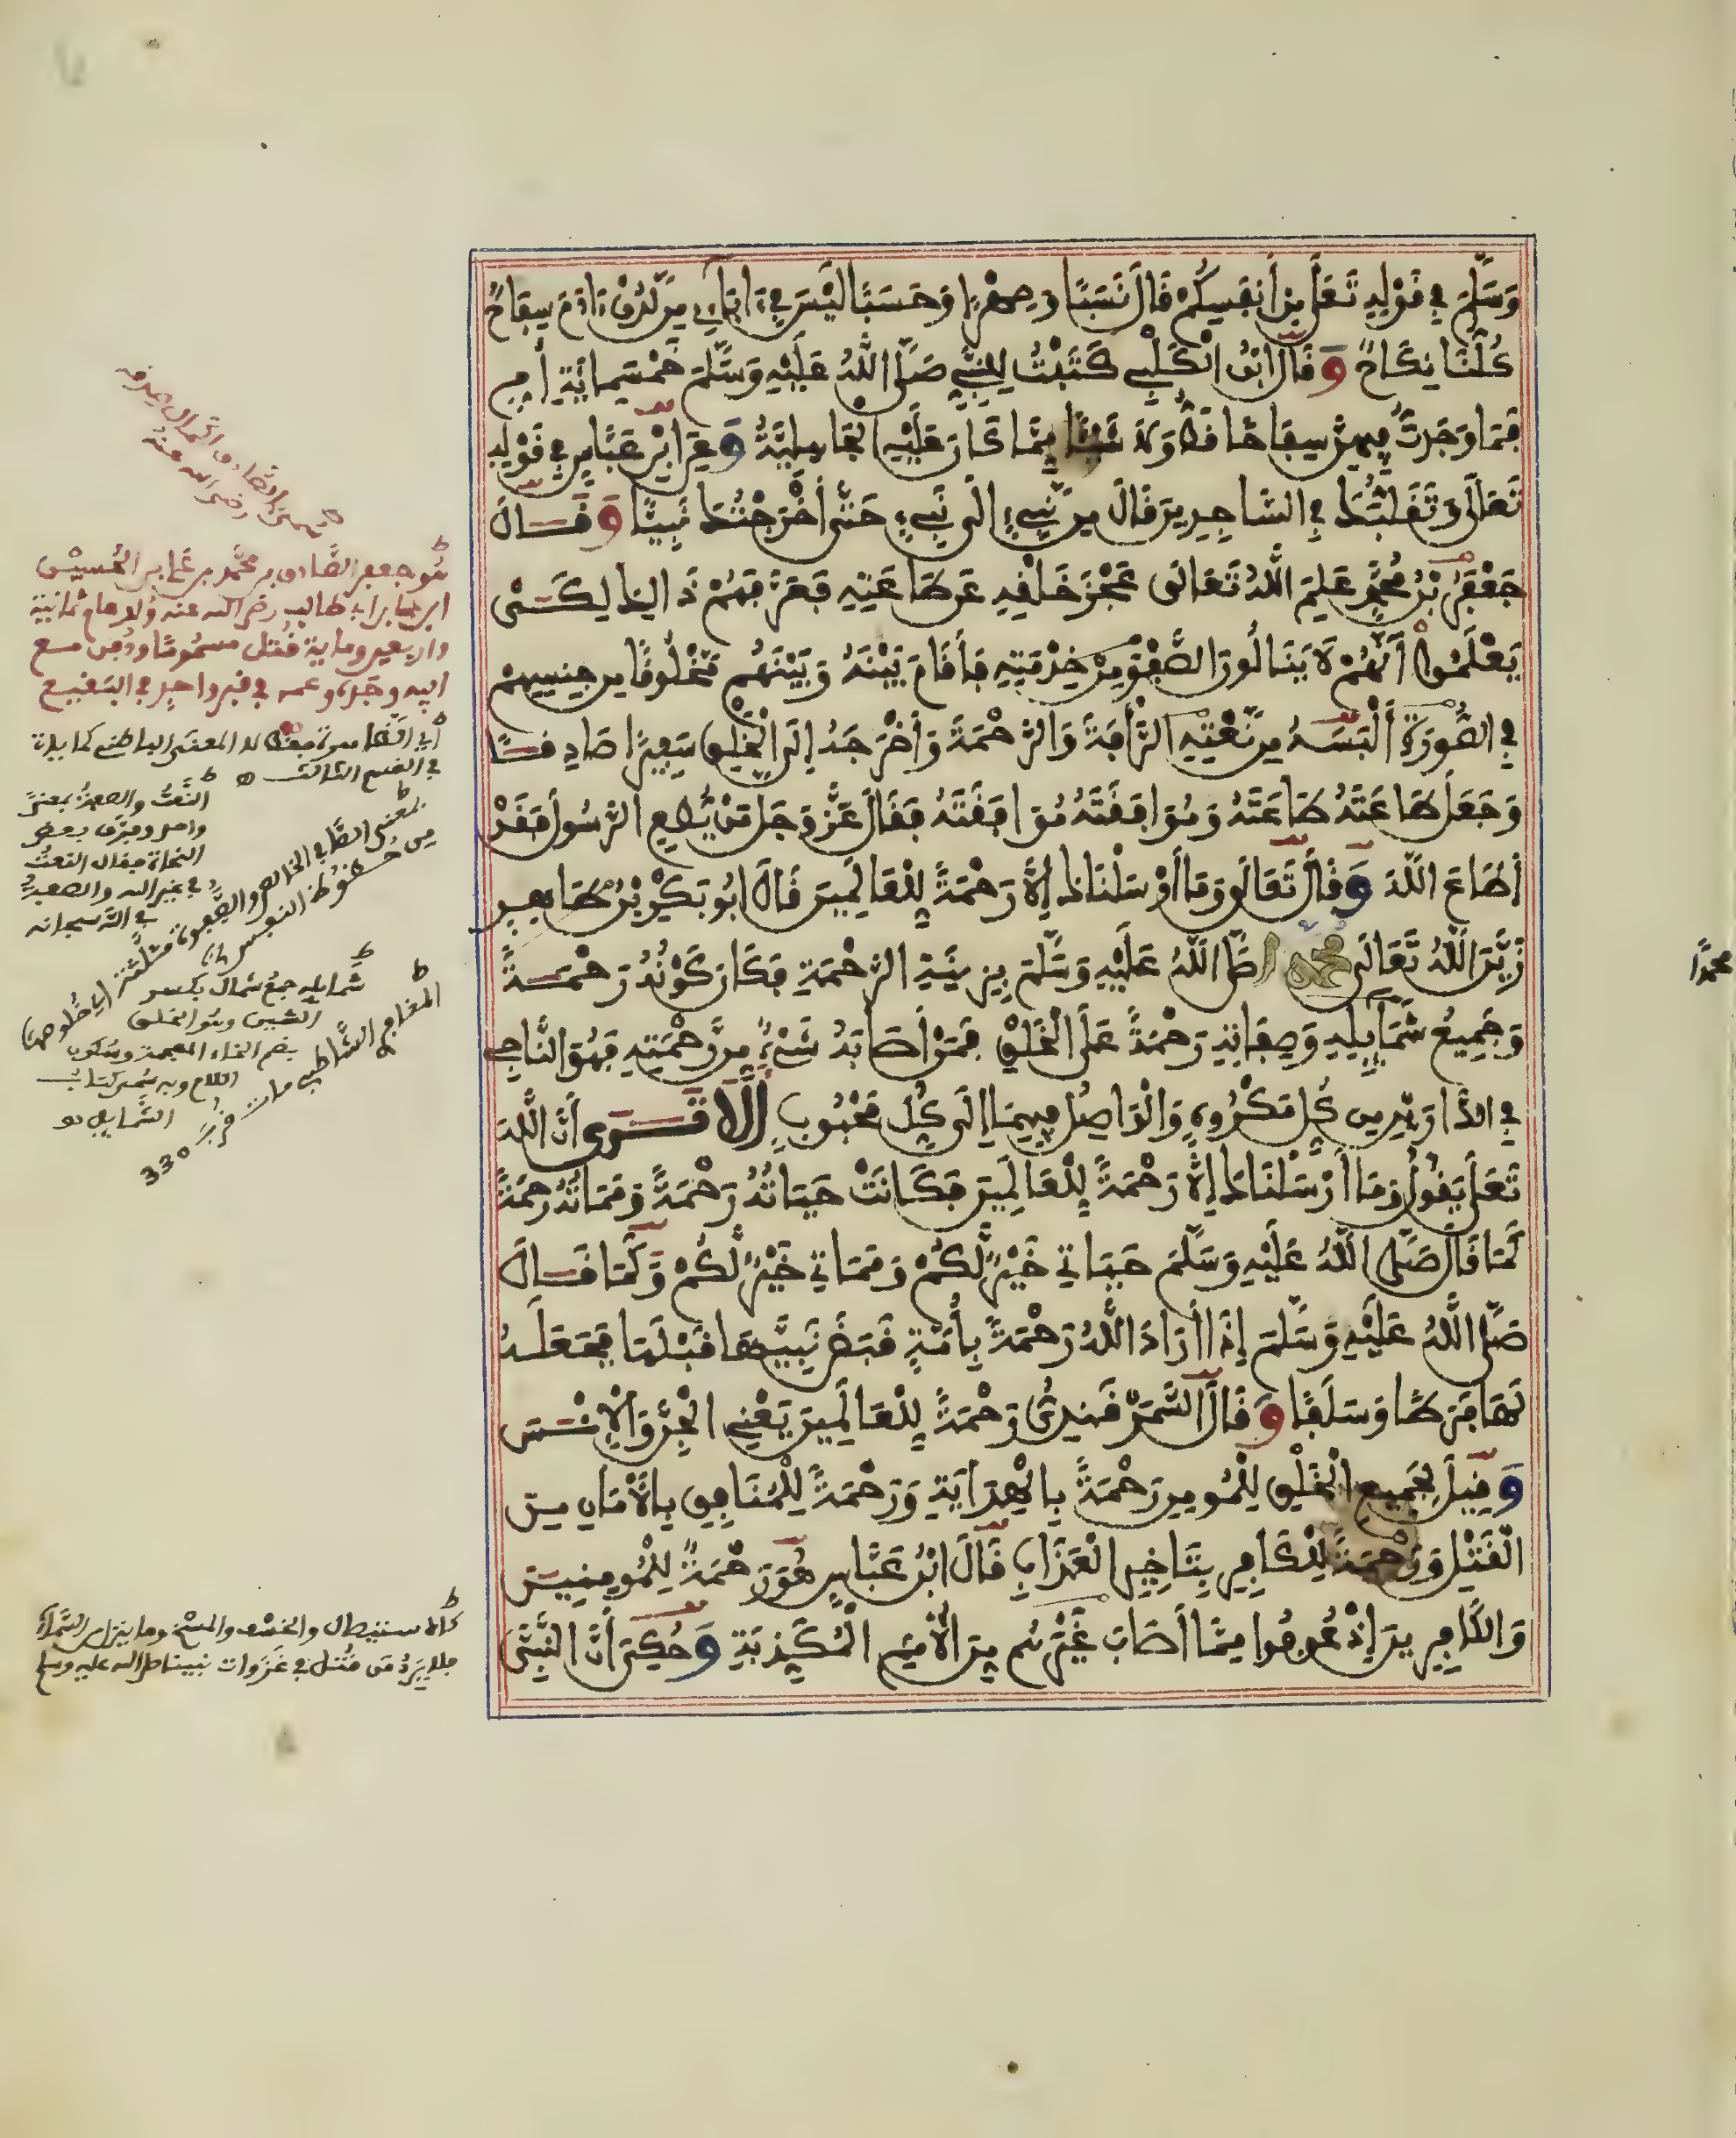 وَسَلَّمَ فِي قَوْلِهِ تَعَلَى مِنْ أَنفَسِكُمْ قَالَ نَسَبًا وَصِهْرًا وَحَسَبًا لَيْسَ فِي ءَابَاءِي مِن لَّدُنْ ءَادَمَ سِفَاحٌ
كُلُّنَا نِكَاحٌ وَقَالَ ابْنُ الْكَلْبِي كَتَبْتُ لِلنَّبِيِّ صَلَّى اللَّهُ عَلَيْهِ وَسَلَّمَ خَمْسَمِائَةِ أُمٍّ
فَمَا وَجَدتُّ فِيهِنَّ سِفَاحًا قَطُّ وَلَا شَيْئًا مِمَّا كَانَ عَلَيْهِ الْجَاهِلِيَّةُ وَعَنِ ابْنِ عَبَّاسٍ فِي قَوْلِهِ
تَعَلَى وَتَقَلُّبَكَ فِي السَّاجِدِينَ قَالَ مِن نَّبِيءٍ إِلَى نَبِيءٍ حَتَّى أَخْرَجْتُكَ نَبِيئًا وَقَالَ
جَعْفَرُ بْنُ مُحَمَّدٍ عَلِمَ اللَّهُ تَعَالَى عَجْزَ خَلْقِهِ عَن طَاعَتِهِ فَعَرَّفَهُمْ ذَالِكَ لِكَيْ
يَعْلَمُوا أَنَّهُمْ لَا يَنَالُونَ الصَّفْوَ مِنْ خِدْمَتِهِ فَأَقَامَ بَيْنَهُ وَبَيْنَهُم مَّخْلُوقًا مِن جِنْسِهِمْ
فِي الصُّورَةِ أَلْبَسَهُ مِن نَّعْتِهِ الرَّأْفَةَ وَالرَّحْمَةَ وَأَخْرَجَهُ إِلَى الْخَلْقِ سَفِيرًا صَادِقًا
وَجَعَلَ طَاعَتَهُ طَاعَتَهُ وَمُوَافَقَتَهُ مُوَافَقَتَهُ فَقَالَ عَزَّ وَجَلَّ مَنْ يُّطِعِ الرَّسُولَ فَقَدْ
أَطَاعَ اللَّهَ وَقَالَ تَعَالَى وَمَا أَرْسَلْنَاكَ إِلَّا رَحْمَةً لِلْعَالَمِينَ قَالَ أَبُو بَكْرِ بْنُ طَاهِرٍ
زَيَّنَ اللَّهُ تَعَالَى مُحَمَّدًا صَلَّى اللَّهُ عَلَيْهِ وَسَلَّمَ بِزِينَةِ الرَّحْمَةِ فَكَانَ كَوْنُهُ رَحْمَةً
وَجَمِيعُ شَمَايِلِهِ وَصِفَاتِهِ رَحْمَةً عَلَى الْخَلْقِ فَمَنْ أَصَابَهُ شَيْءٌ مِن رَّحْمَتِهِ فَهُوَ النَّاجِي
فِي الدَّارَيْنِ مِن كُلِّ مَكْرُوهٍ وَالْوَاصِلُ فِيهِمَا إِلَى كُلِّ مَحْبُوبٍ أَلَا تَرَى أَنَّ اللَّهَ
تَعَلَى يَقُولُ وَمَا أَرْسَلْنَاكَ إِلَّا رَحْمَةً لِلْعَالَمِينَ فَكَانَتْ حَيَاتُهُ رَحْمَةً وَمَمَاتُهُ رَحْمَةً
كَمَا قَالَ صَلَّى اللَّهُ عَلَيْهِ وَسَلَّمَ حَيَاتِي خَيْرٌ لَّكُمْ وَمَمَاتِي خَيْرٌ لَّكُمْ وَكَمَا قَالَ
صَلَّى اللَّهُ عَلَيْهِ وَسَلَّمَ إِذَا أَرَادَ اللَّهُ رَحْمَةً بِأُمَّةٍ قَبَضَ نَبِيَّهَا قَبْلَهَا فَجَعَلَهُ
لَهَا فَرَطًا وَسَلَفًا وَقَالَ السَّمَرْقَنْدِيُّ رَحْمَةً لِلْعَالَمِينَ يَعْنِي الْجِنَّ وَالْإِنْسَ
وَقِيلَ لِجَمِيعِ الْخَلْقِ لِلْمُومِنِ رَحْمَةً بِالْهِدَايَةِ وَرَحْمَةً لِلْمُنَافِقِ بِالْأَمَانِ مِنَ
الْقَتْلِ وَرَحْمَةً لِلْكَافِرِ بِتَاخِيرِ الْعَذَابِ قَالَ ابْنُ عَبَّاسٍ هُوَ رَحْمَةٌ لِلْمُومِنِينَ
وَالْكَافِرِينَ إِذْ عُوفُوا مِمَّا أَصَابَ غَيْرَهُم مِنَ الْأُمَمِ الْمُكَذِّبَةِ وَحُكِيَ أَنَّ النَّبِيَّ
محمدًا
رضي الله عنه
هُو جعفر الصَّادق بن محمَّد بن علي بن الحُسيْن
ابن علي بن ابي طالب رضي الله عنه وُلد عام ثمانية
واربعين وماية فقتل مسمُومًا ودُفن مع
ابيه وجَدّه وعمه في قبر واحد في البَقيع
في القسم الثالث
النَّعتُ والصفةُ بمعنىً
واحد وفرَّق بعض
النحاة فقال النعتُ
في غير الله والصفة
في الله سبحانه
شَمايله جمعُ شمال بكسر
الشين وهُو الخلق
بضم الخاء المعجمة وسُكون
اللام وبه سُمِّي كتاب
الشَّمايل
330
كالاستيصال والخسْف والمسْخ وما ينزل من السَّماء
فلا يَرِدُ مَن قُتل في غَزَوات نبينا صلى الله عليه وسلم